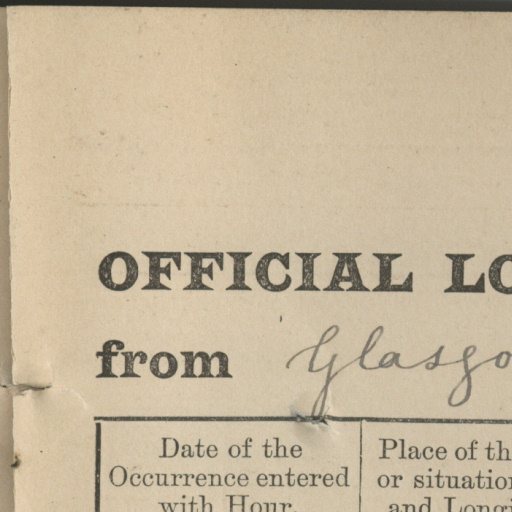 OFFICIAL LO
from Glasgo
Date of the
Occurrence entered
with Hour.
Place of th
or situation
and Longi